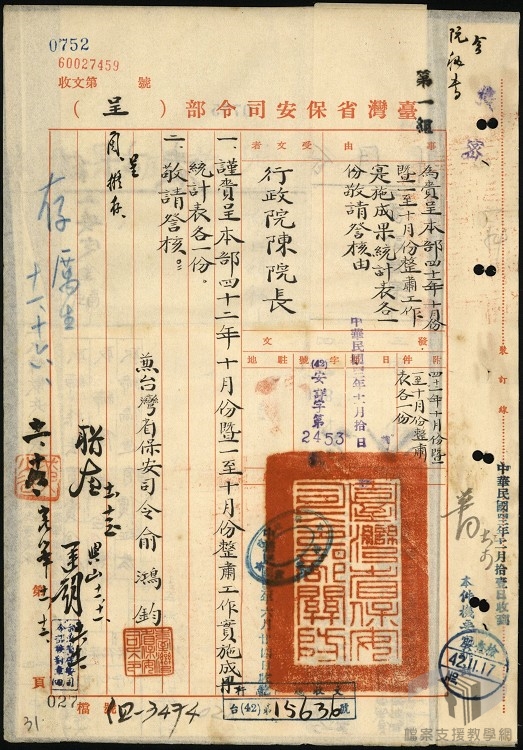 0752
60027459
收文第 號
第一組
臺灣省保安司令部（呈）
事由
為賫呈本部四十二年十月份
暨一至十月份整肅工作
實施成果統計表各一
份敬請鑒核由
受文者
行政院陳院長
發文
附件
四十二年十月份暨
一至十月份整肅
表各一份
日期
中華民國四十二年十一月拾日
字號
(42)安諜字第
2453
駐地
一、謹賫呈本部四十二年十月份暨一至十月份整肅工作實施成果
統計表各一份。
二、敬請鑒核。
兼台灣省保安司令俞鴻鈞
呈
閱。擬存。
存 厲生
十一、十六
裝訂線
中華民國四十二年十一月拾壹日收到
42.11.17
臺灣省保安司令部關防
收文總 科
台(42)第15636號
第 頁
027
檔號
四-3494
31
檔案支援教學網